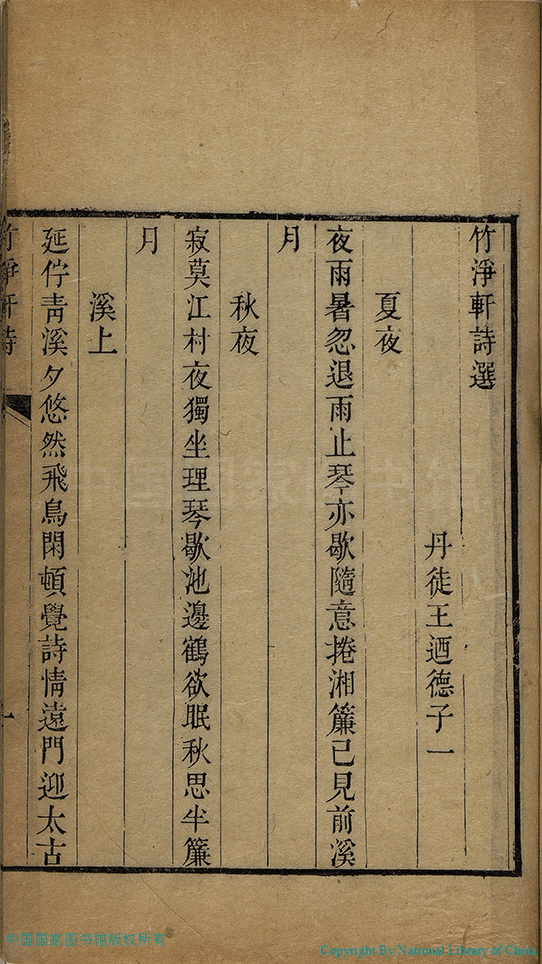 竹淨軒詩選
丹徒王迺德子一
夏夜
夜雨暑忽退雨止琴亦歇隨意捲湘簾已見前溪
月
秋夜
寂莫江村夜獨坐理琴歇池邊鶴欲眠秋思半簾
月
溪上
延佇青溪夕悠然飛鳥閑頓覺詩情遠門迎太古
竹淨軒詩
一
中国国家图书馆版权所有
Copyright By National Library of China